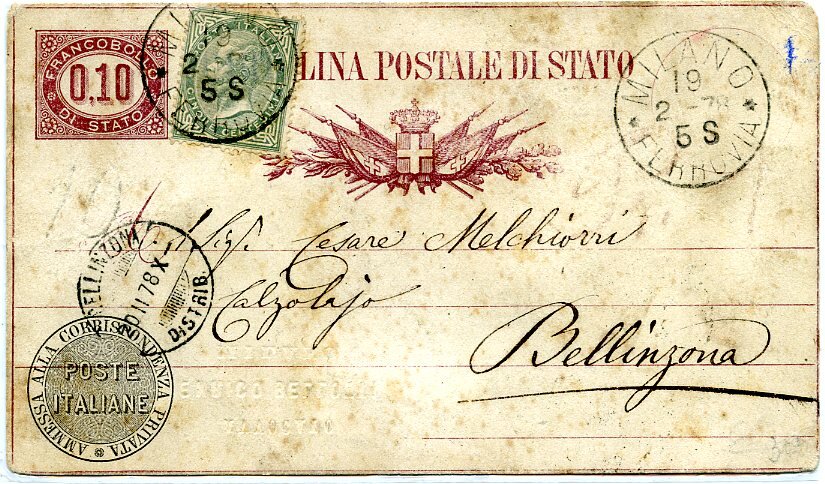 FRANCOBOLLO
0,10
DI STATO
MILANO
19
2
5 S
FERROVIA
LINA POSTALE DI STATO
MILANO
19
2 - 78
5 S
FERROVIA
Sig. Cesare Melchiorri
Calzolajo
Bellinzona
BELLINZONA
II 78 X
DISTRIB.
AMMESSA ALLA CORRISPONDENZA PRIVATA
POSTE
ITALIANE